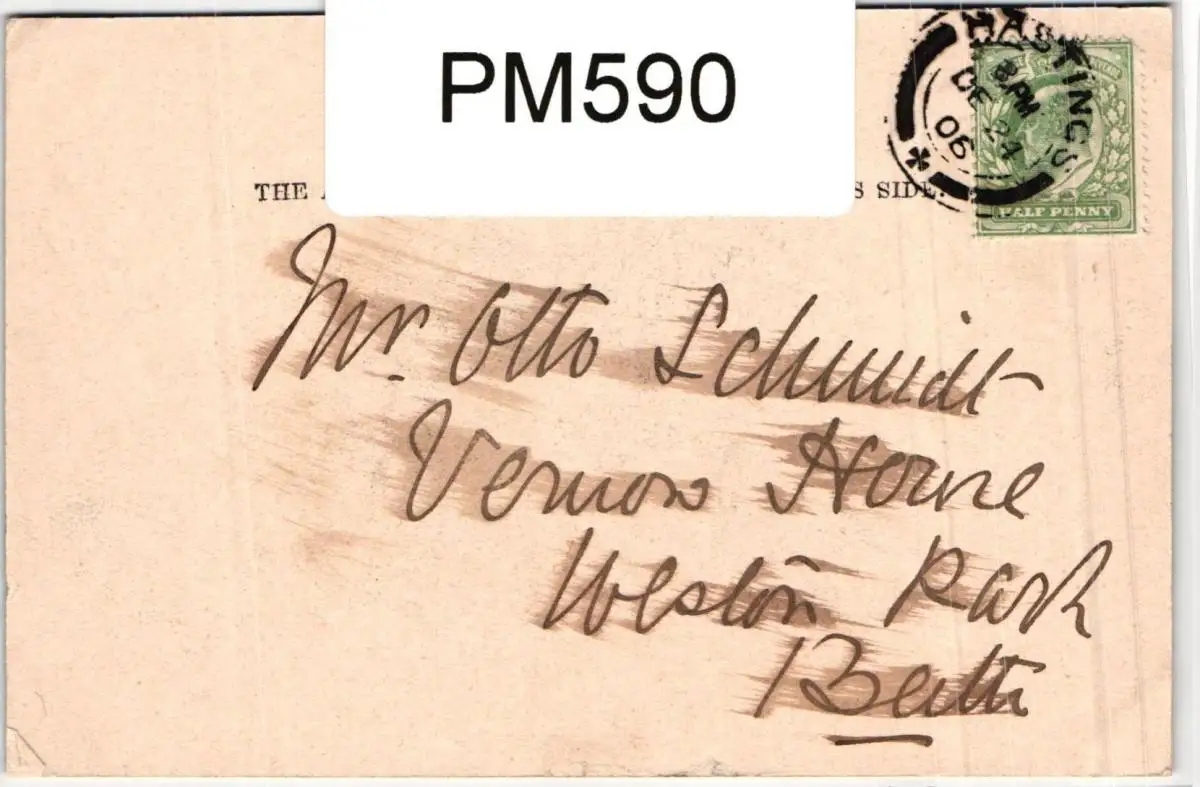 PM590
HASTINGS
8 PM
DE 24
06
HALF PENNY
THE
S SIDE.
Mr. Otto Schmidt
Vernon House
Weston Park
Bath